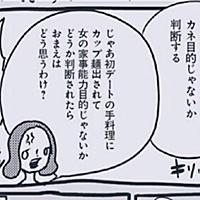 カネ目的じゃないか
判断する
じゃあ初デートの手料理に
カップ麺出されて
女の家事能力目的じゃないか
どうか判断されたら
おまえは
どう思うわけ?
キリッ